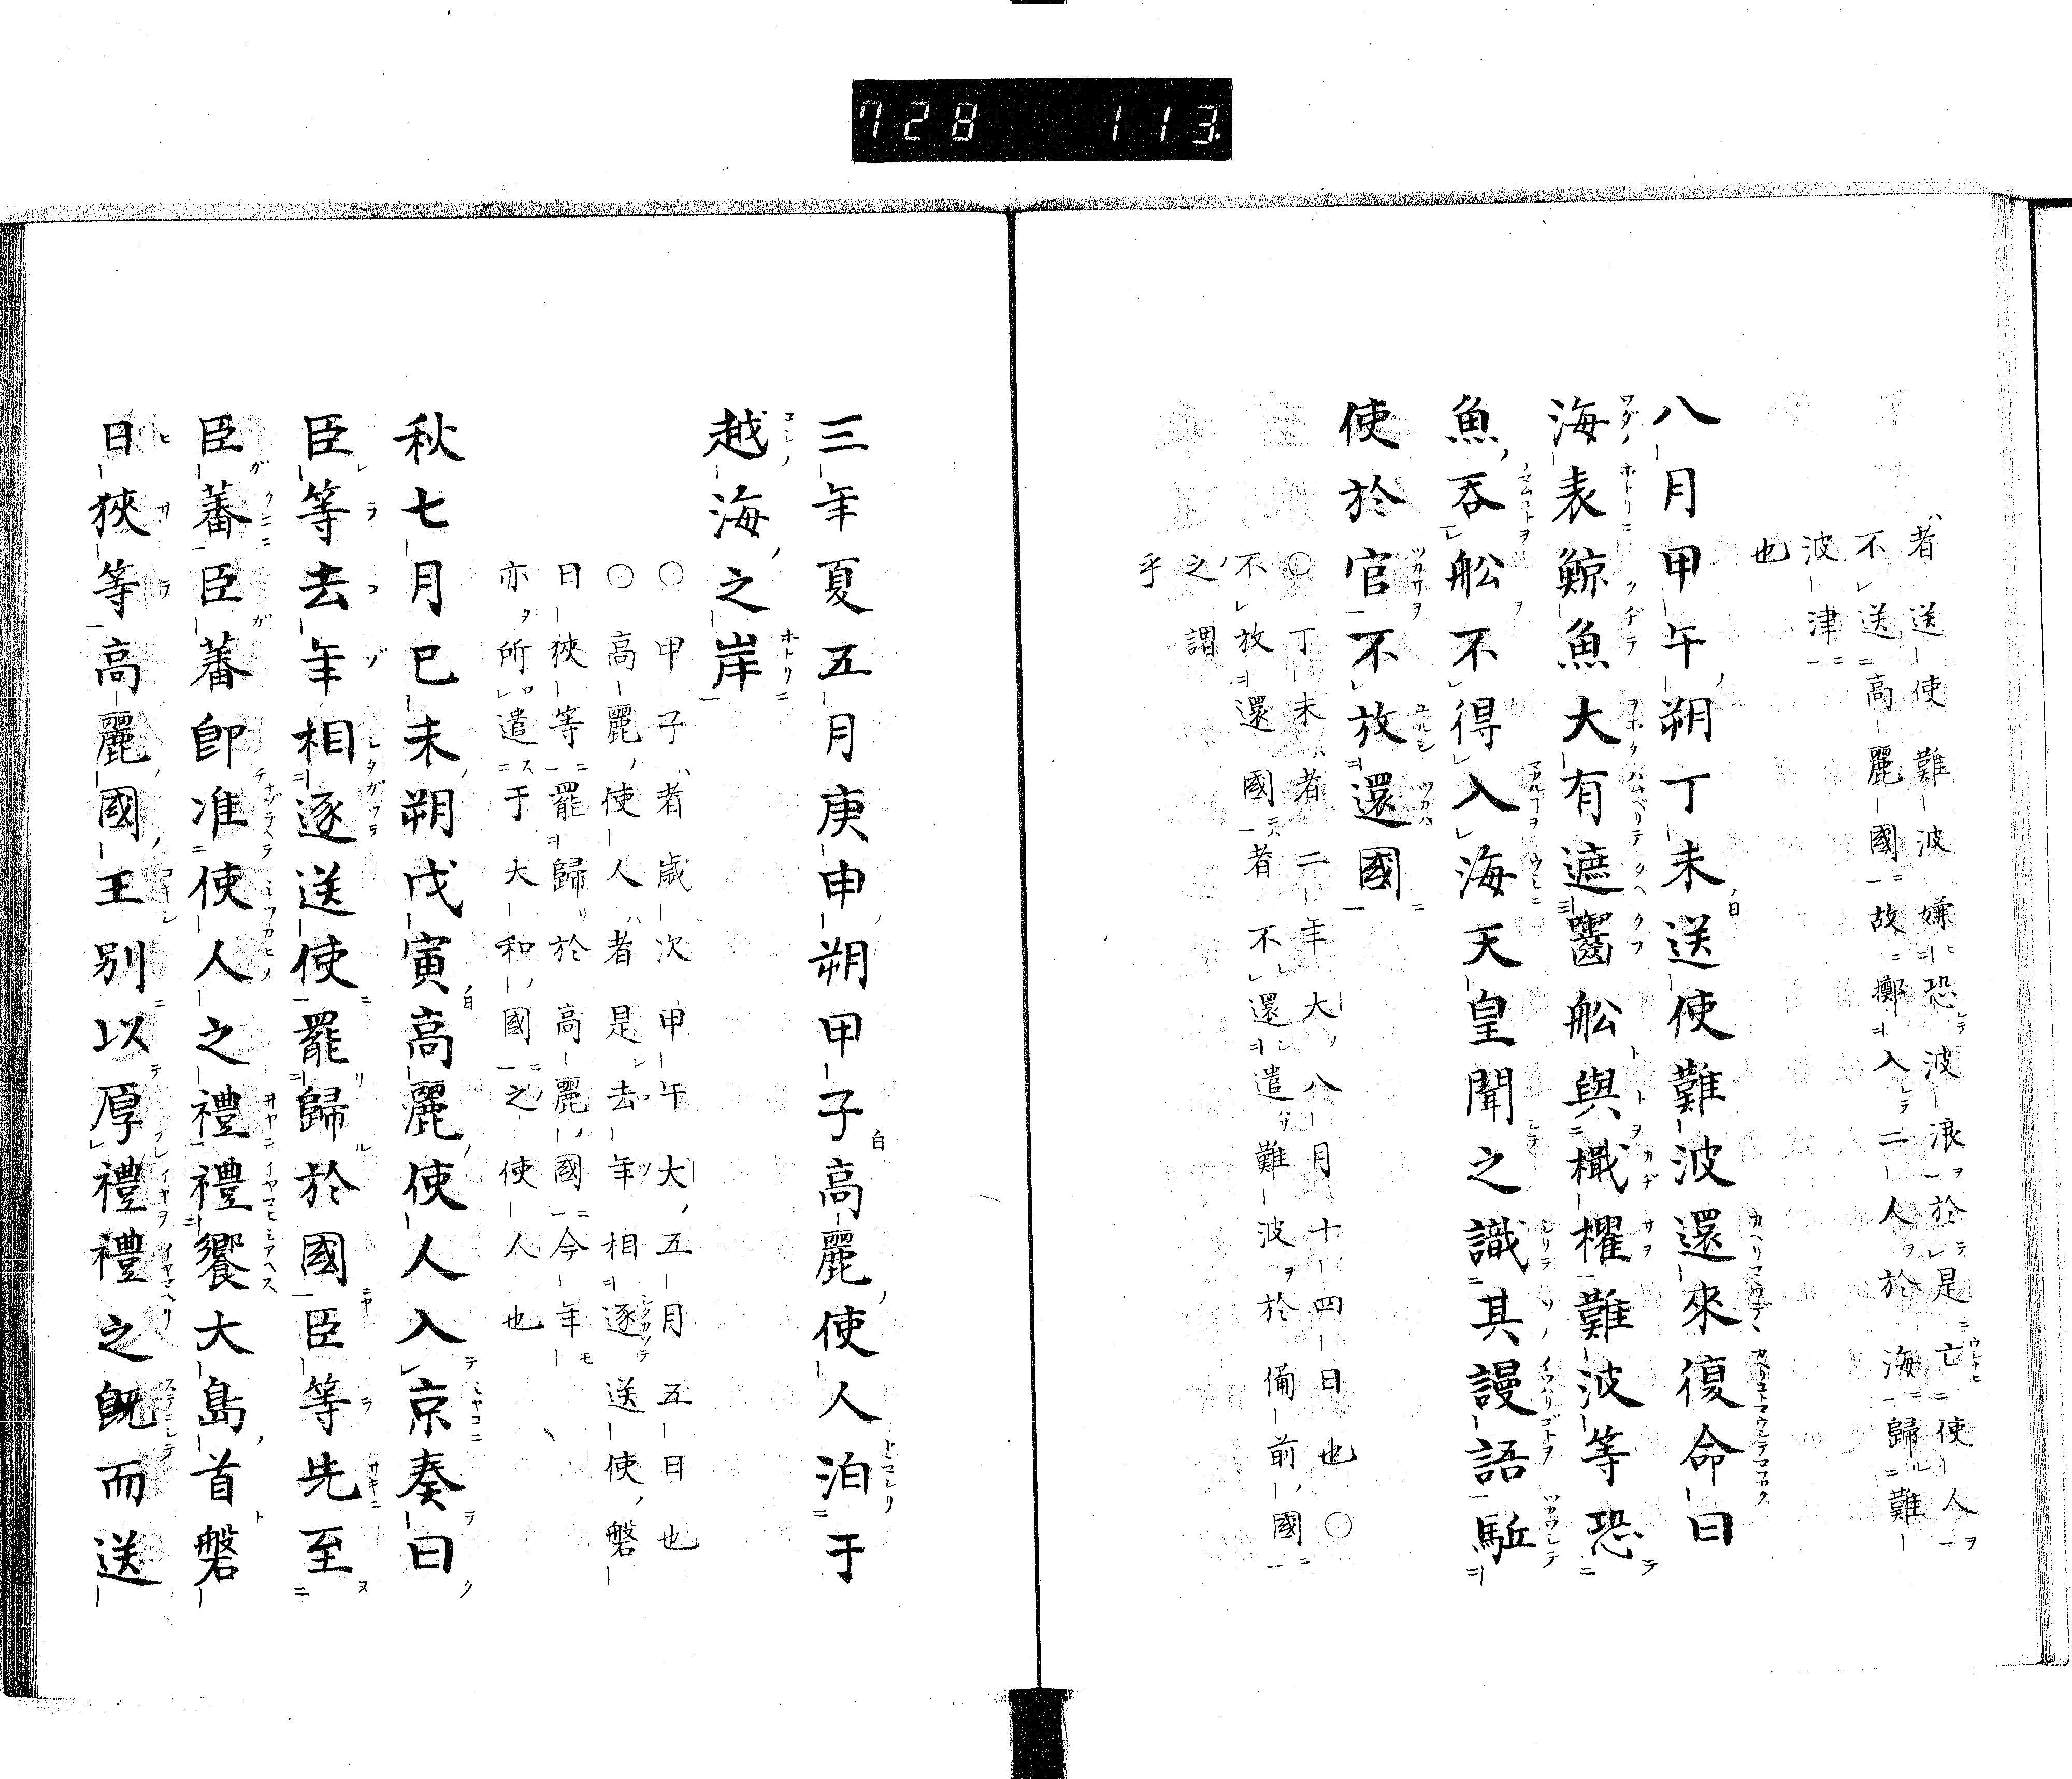 728 113.
者送使難波嫌恐波浪於是亡使人
不送高麗國故擲入二人於海歸難
波津
也
八月甲午朔丁未送使難波還來復命曰
海表鯨魚大有遮齧舩與檝櫂難波等恐
魚吞舩不得入海天皇聞之識其謾語駈
使於官不放還國
○丁未者二年大八月十四日也○
不放還國者不還遣難波於備前國
之謂
乎
三年夏五月庚申朔甲子高麗使人泊于
越海之岸
○甲子者歲次甲午大五月五日也
○高麗使人者是去年相逐送使磐
日狹等罷歸於高麗國今年
亦所遣于大和國之使人也
秋七月巳未朔戊寅高麗使人入京奏曰
臣等去年相逐送使罷歸於國臣等先至
臣蕃臣蕃卽准使人之禮禮饗大島首磐
日狹等高麗國王別以厚禮禮之旣而送